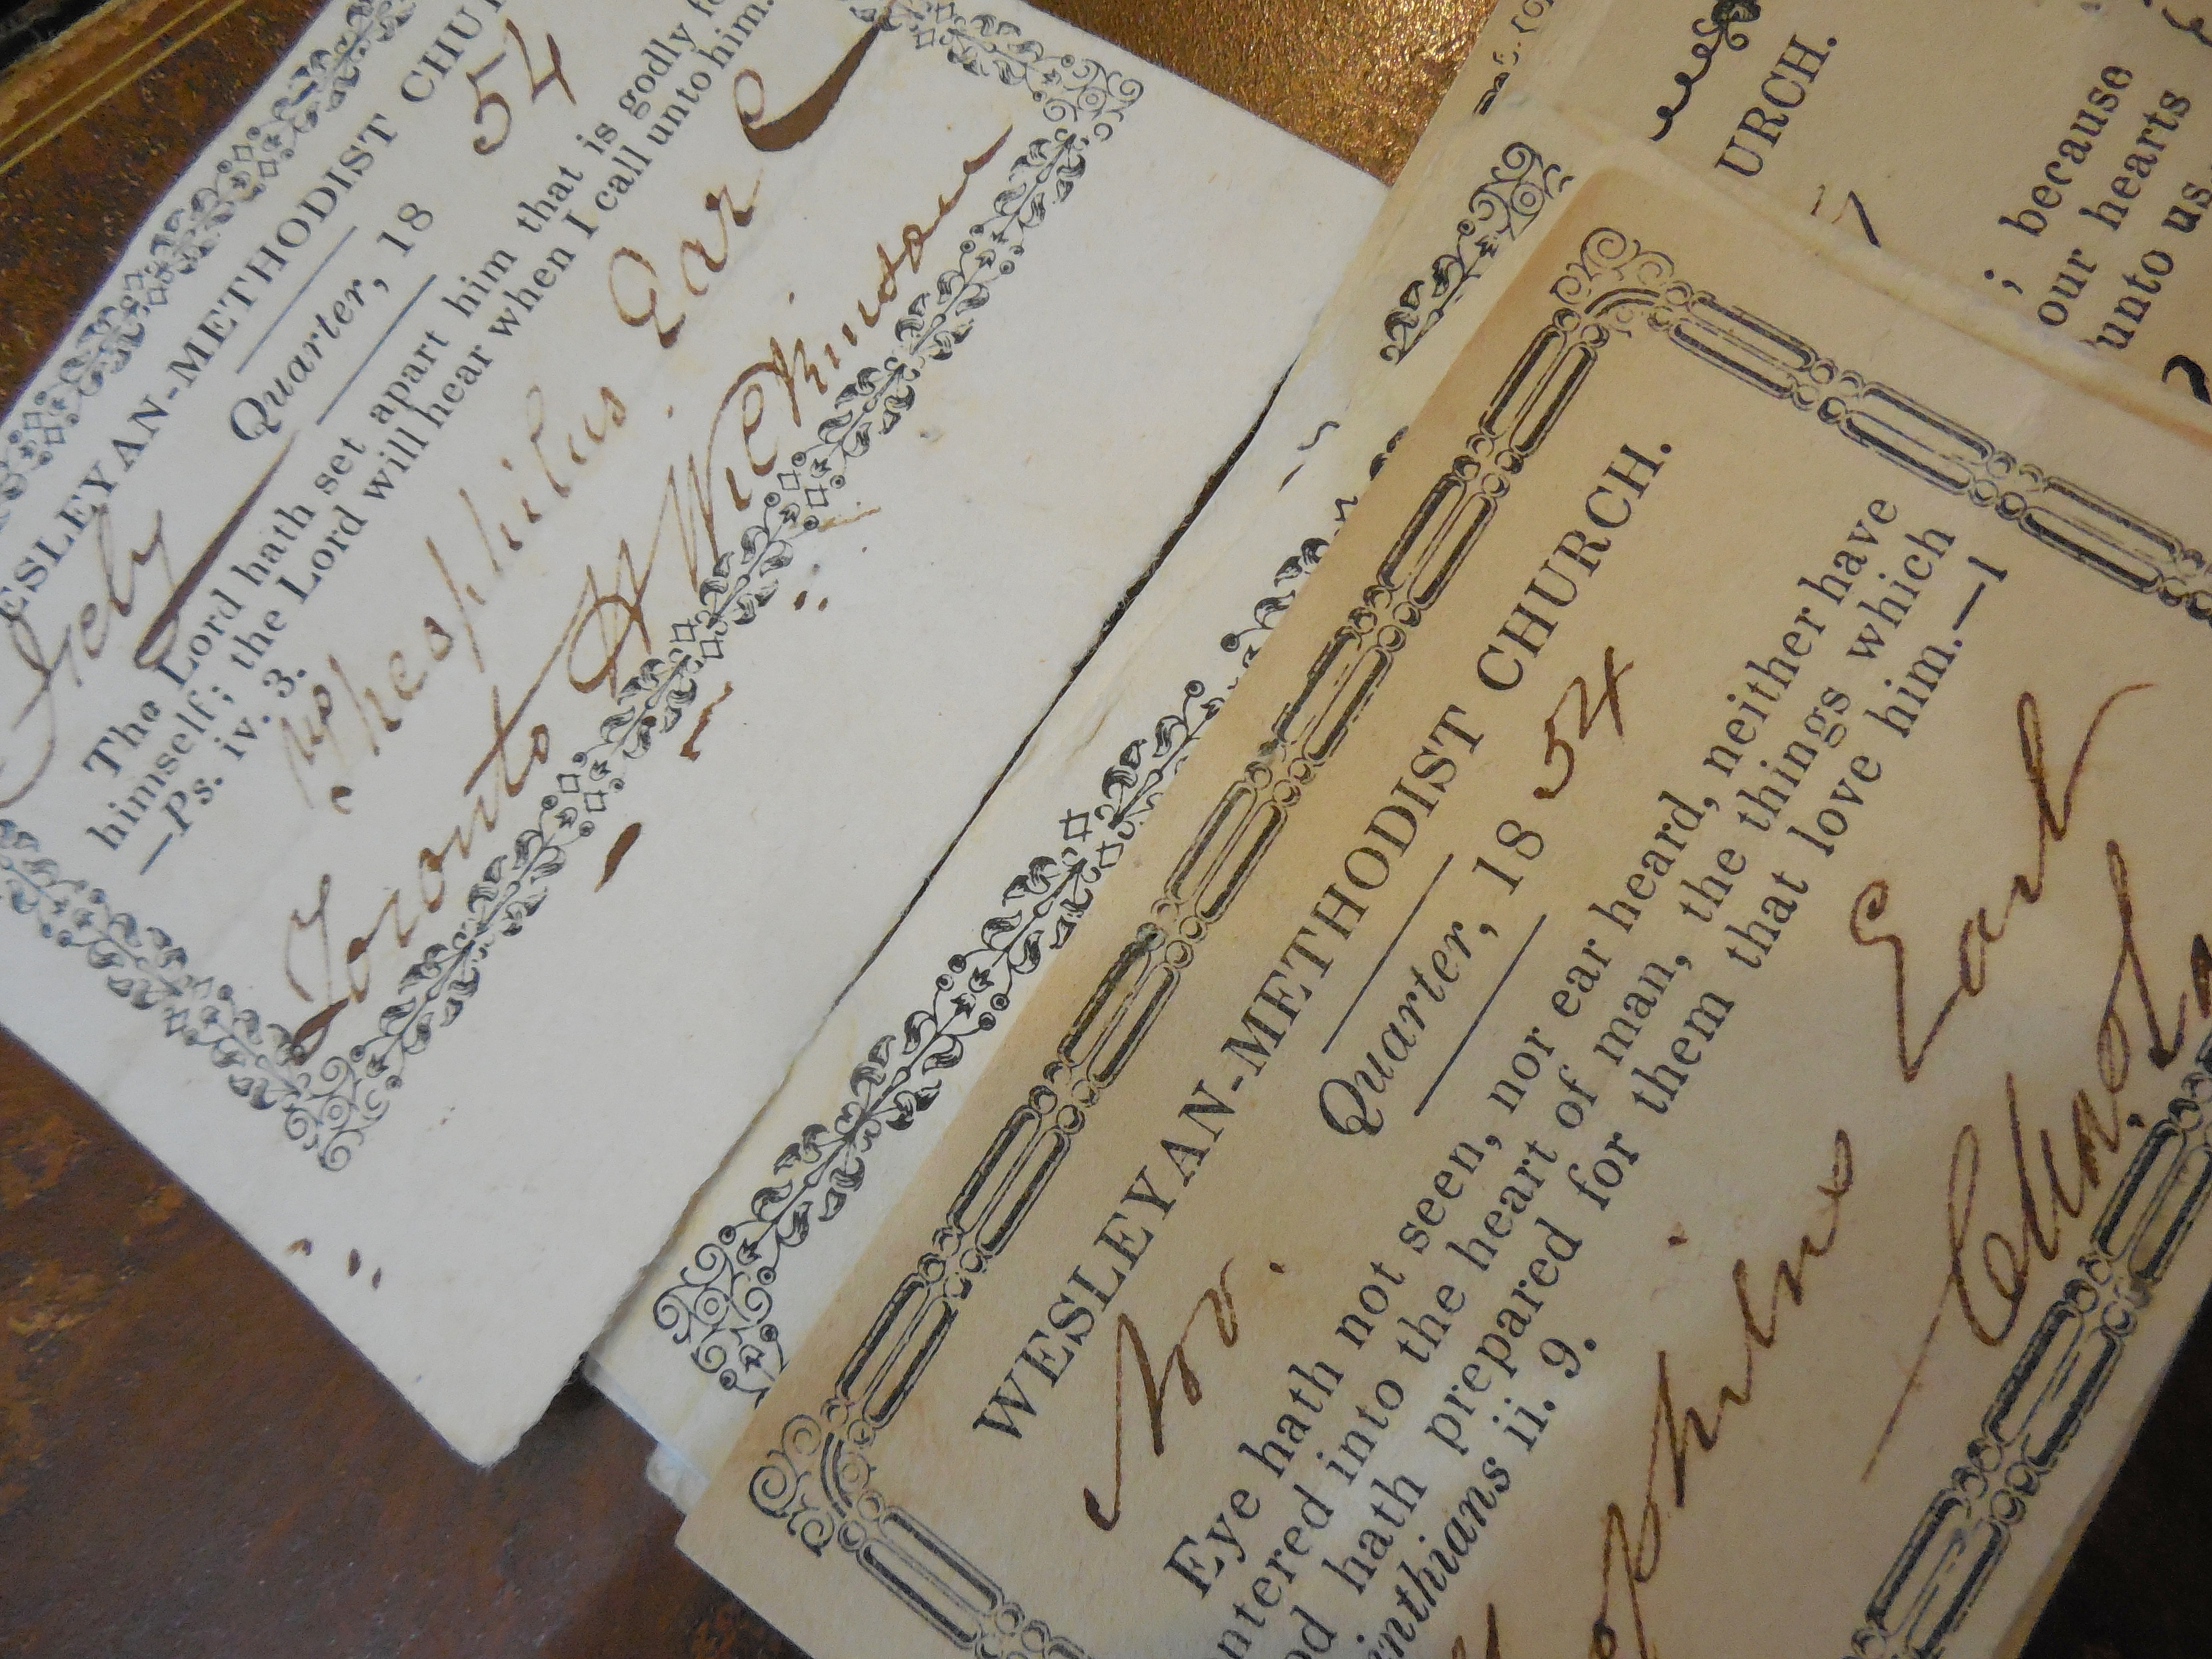 ESLEYAN-METHODIST CHU
Quarter, 18 54
The Lord hath set apart him that is godly f
himself; the Lord will hear when I call unto him.
—Ps. iv. 3.
Theophilus Earl
Toronto H Wilkinson
WESLEYAN-METHODIST CHURCH.
Quarter, 18 54
Eye hath not seen, nor ear heard, neither have
ntered into the heart of man, the things which
od hath prepared for them that love him.—1
inthians ii. 9.
Earl
URCH.
; because
our hearts
unto us.